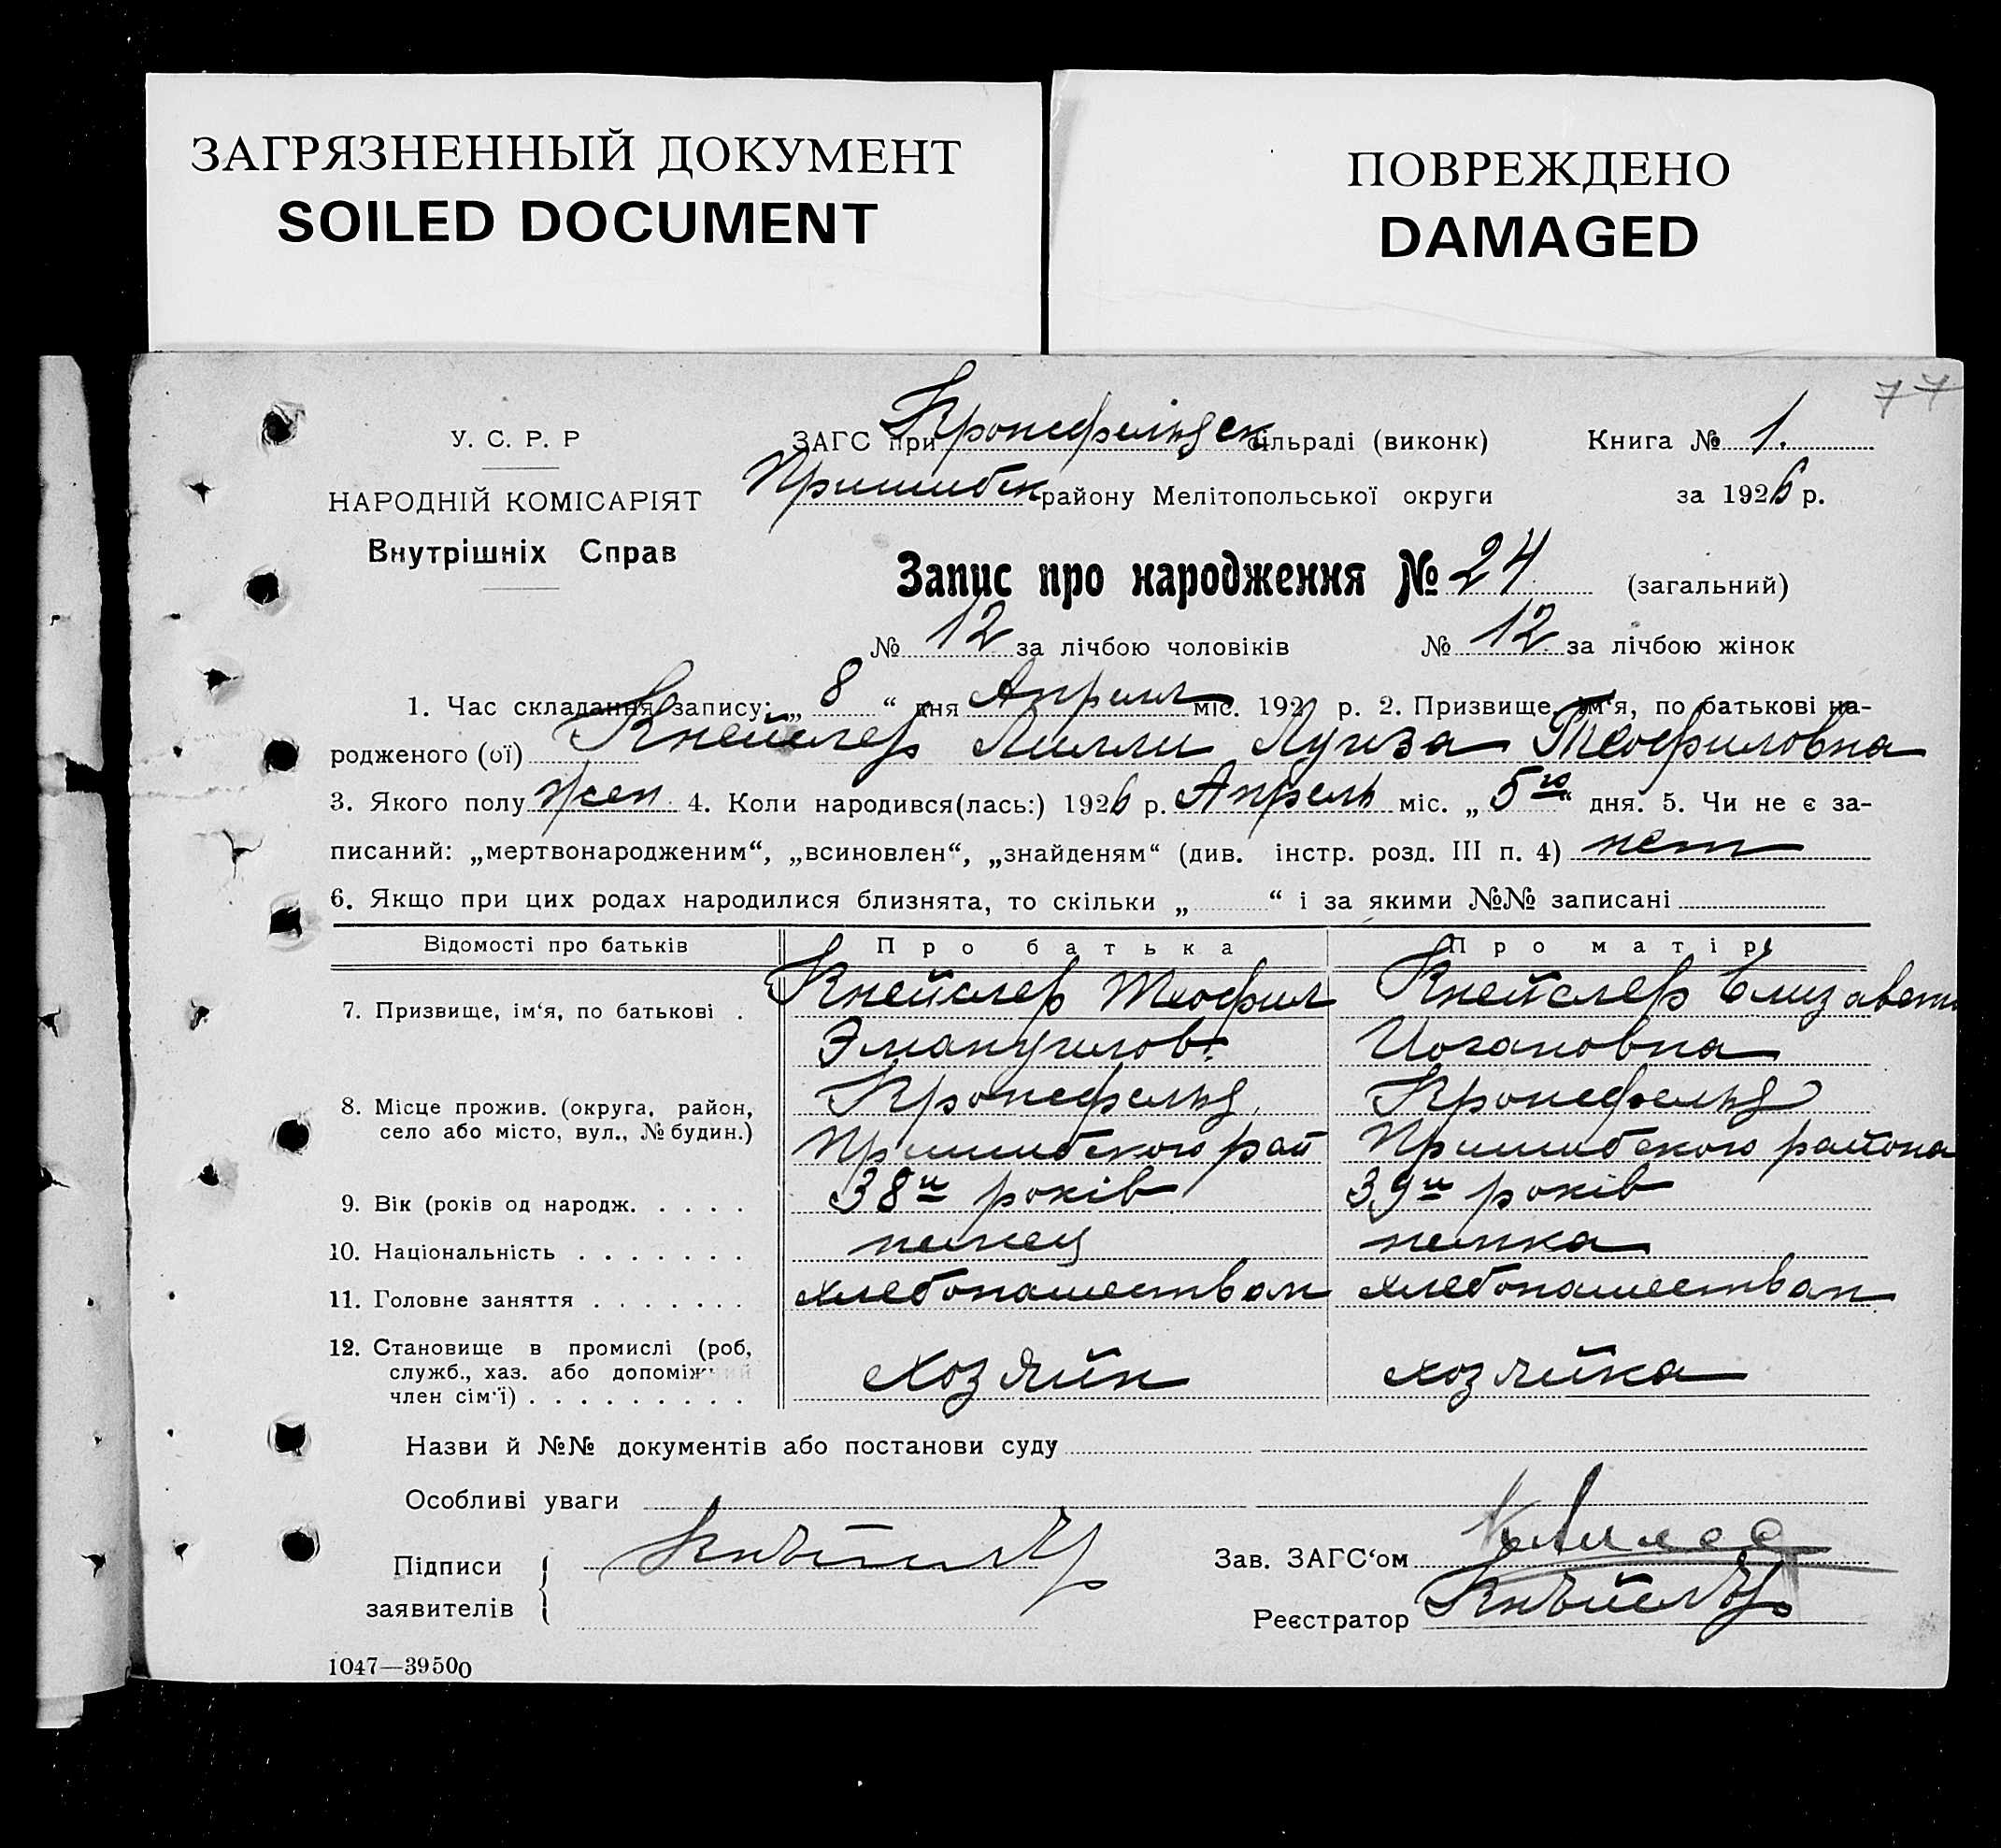 ЗАГРЯЗНЕННЫЙ ДОКУМЕНТ
SOILED DOCUMENT
ПОВРЕЖДЕНО
DAMAGED
77
У. С. Р. Р
НАРОДНІЙ КОМІСАРІЯТ
Внутрішніх Справ
ЗАГС при Кронсфельдск сільраді (виконк) Книга № 1.
Пришибск району Мелітопольської округи за 1926 р.
Запис про народження № 24 (загальний)
№ 12 за лічбою чоловіків № 12 за лічбою жінок
1. Час складання запису: „ 8 “ дня Апреля міс. 192 р. 2. Призвище, ім‘я, по батькові на-
родженого (ої) Кнейслер Лилли Луиза Теофиловна
3. Якого полу жен. 4. Коли народився(лась:) 1926 р. Апрель міс. „ 5го “ дня. 5. Чи не є за-
писаний: „мертвонародженим“, „всиновлен“, „знайденям“ (див. інстр. розд. III п. 4) нет
6. Якщо при цих родах народилися близнята, то скільки „ “ і за якими №№ записані
Відомості про батьків Про батька Про матір
7. Призвище, ім‘я, по батькові . Кнейслер Теофил Кнейслер Елизавета
Эмануилов. Иогановна
8. Місце прожив. (округа, район, Кронсфельд, Кронсфельд
село або місто, вул., № будин.) Пришибского рай Пришибского района
9. Вік (років од народж. . . . . 38и років 39и років
10. Національність . . . . . . . немец немка
11. Головне заняття . . . . . . . хлебопашеством хлебопашеством
12. Становище в промислі (роб,
служб., хаз. або допоміжний хозяйн хозяйка
член сім‘ї) . . . . . . . . .
Назви й №№ документів або постанови суду
Особливі уваги
Підписи Кнейслер Зав. ЗАГС‘ом
заявителів Реєстратор Кнейслер
1047—39500